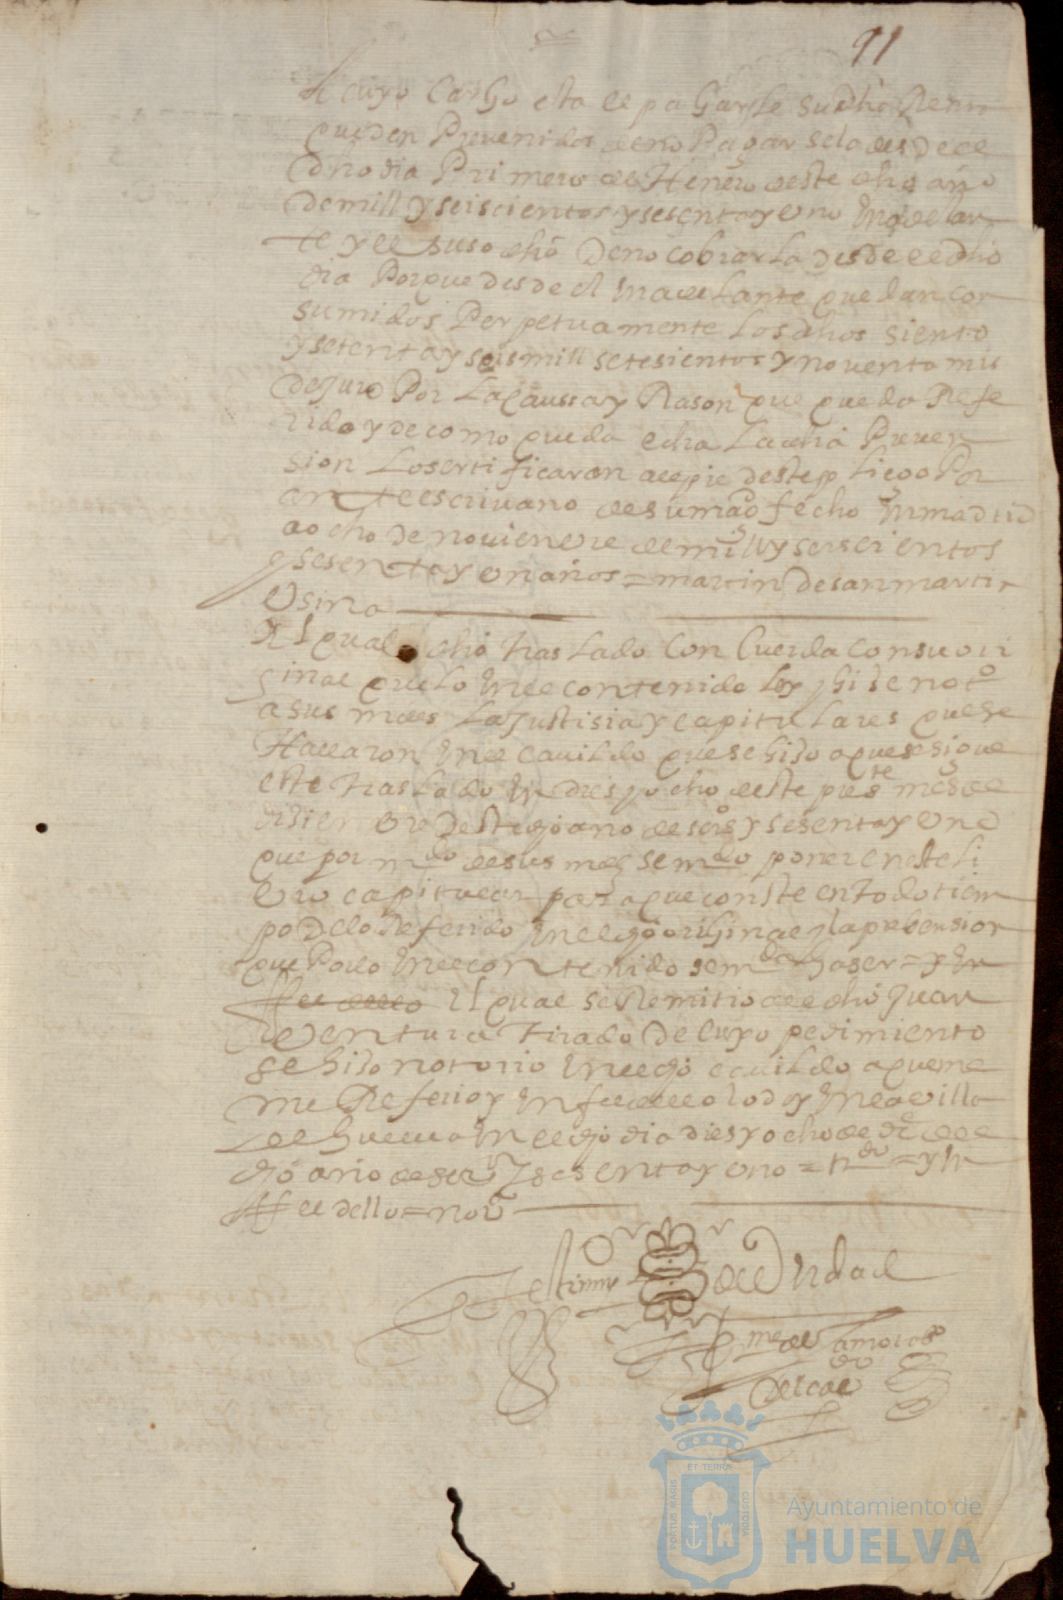 91
A cuyo Cargo esta el pagarle su dha Renta
queden Prevenidos de no Pagarsela desde el
dho dia Primero de Henero deste dho año
de mill y seiscientos y sesenta y uno En adelan
te y el suso dho De no cobrarla desde el dho
dia Porque desde el En adelante quedan con
sumidos Perpetuamente los dhos siento
y setenta y seis mill setesientos y noventa mrs
de juro Por la caussa y Rason que queda Refe
rida y de como queda echa la dha Preven
sion lo sertificaron al pie deste pliego Por
ante escrivano de su magd fecho En madrid
a ocho de noviembre de mill y seiscientos
y sesenta y un años = martin de san martin
Osina
El qual dho traslado Concuerda con su ori
ginal que lo En el contenido ley y hise noto
a sus mdes la Justisia y capitulares que se
Hallaron En el cavildo que se hiso a que se sigue
este traslado En dies y ocho deste preste mes de
disiembre deste dho año de seisos y sesenta y uno
que por mdo de sus mdes se mdo poner en este li
bro capitular para que conste en todo tiem
po De lo Referido En el dho orihinal y la prebension
que Por lo En el contenido se mda haser = y En
ffee dello El qual se Remitio al dho Juan
Bentura tirado De cuyo pedimiento
se hiso notorio En el dho cavildo a que me
me Refiero y En fee dello lo doy En la villa
de Huelva En el dho dia dies y ocho de de del
dho año de seisos y sesenta y uno = tdo = y En
ffee dello = no v
Testimo de Verdad
mel de amoros
escvo
PORTUS MARIS ET TERRAE CUSTODIA
Ayuntamiento de
HUELVA